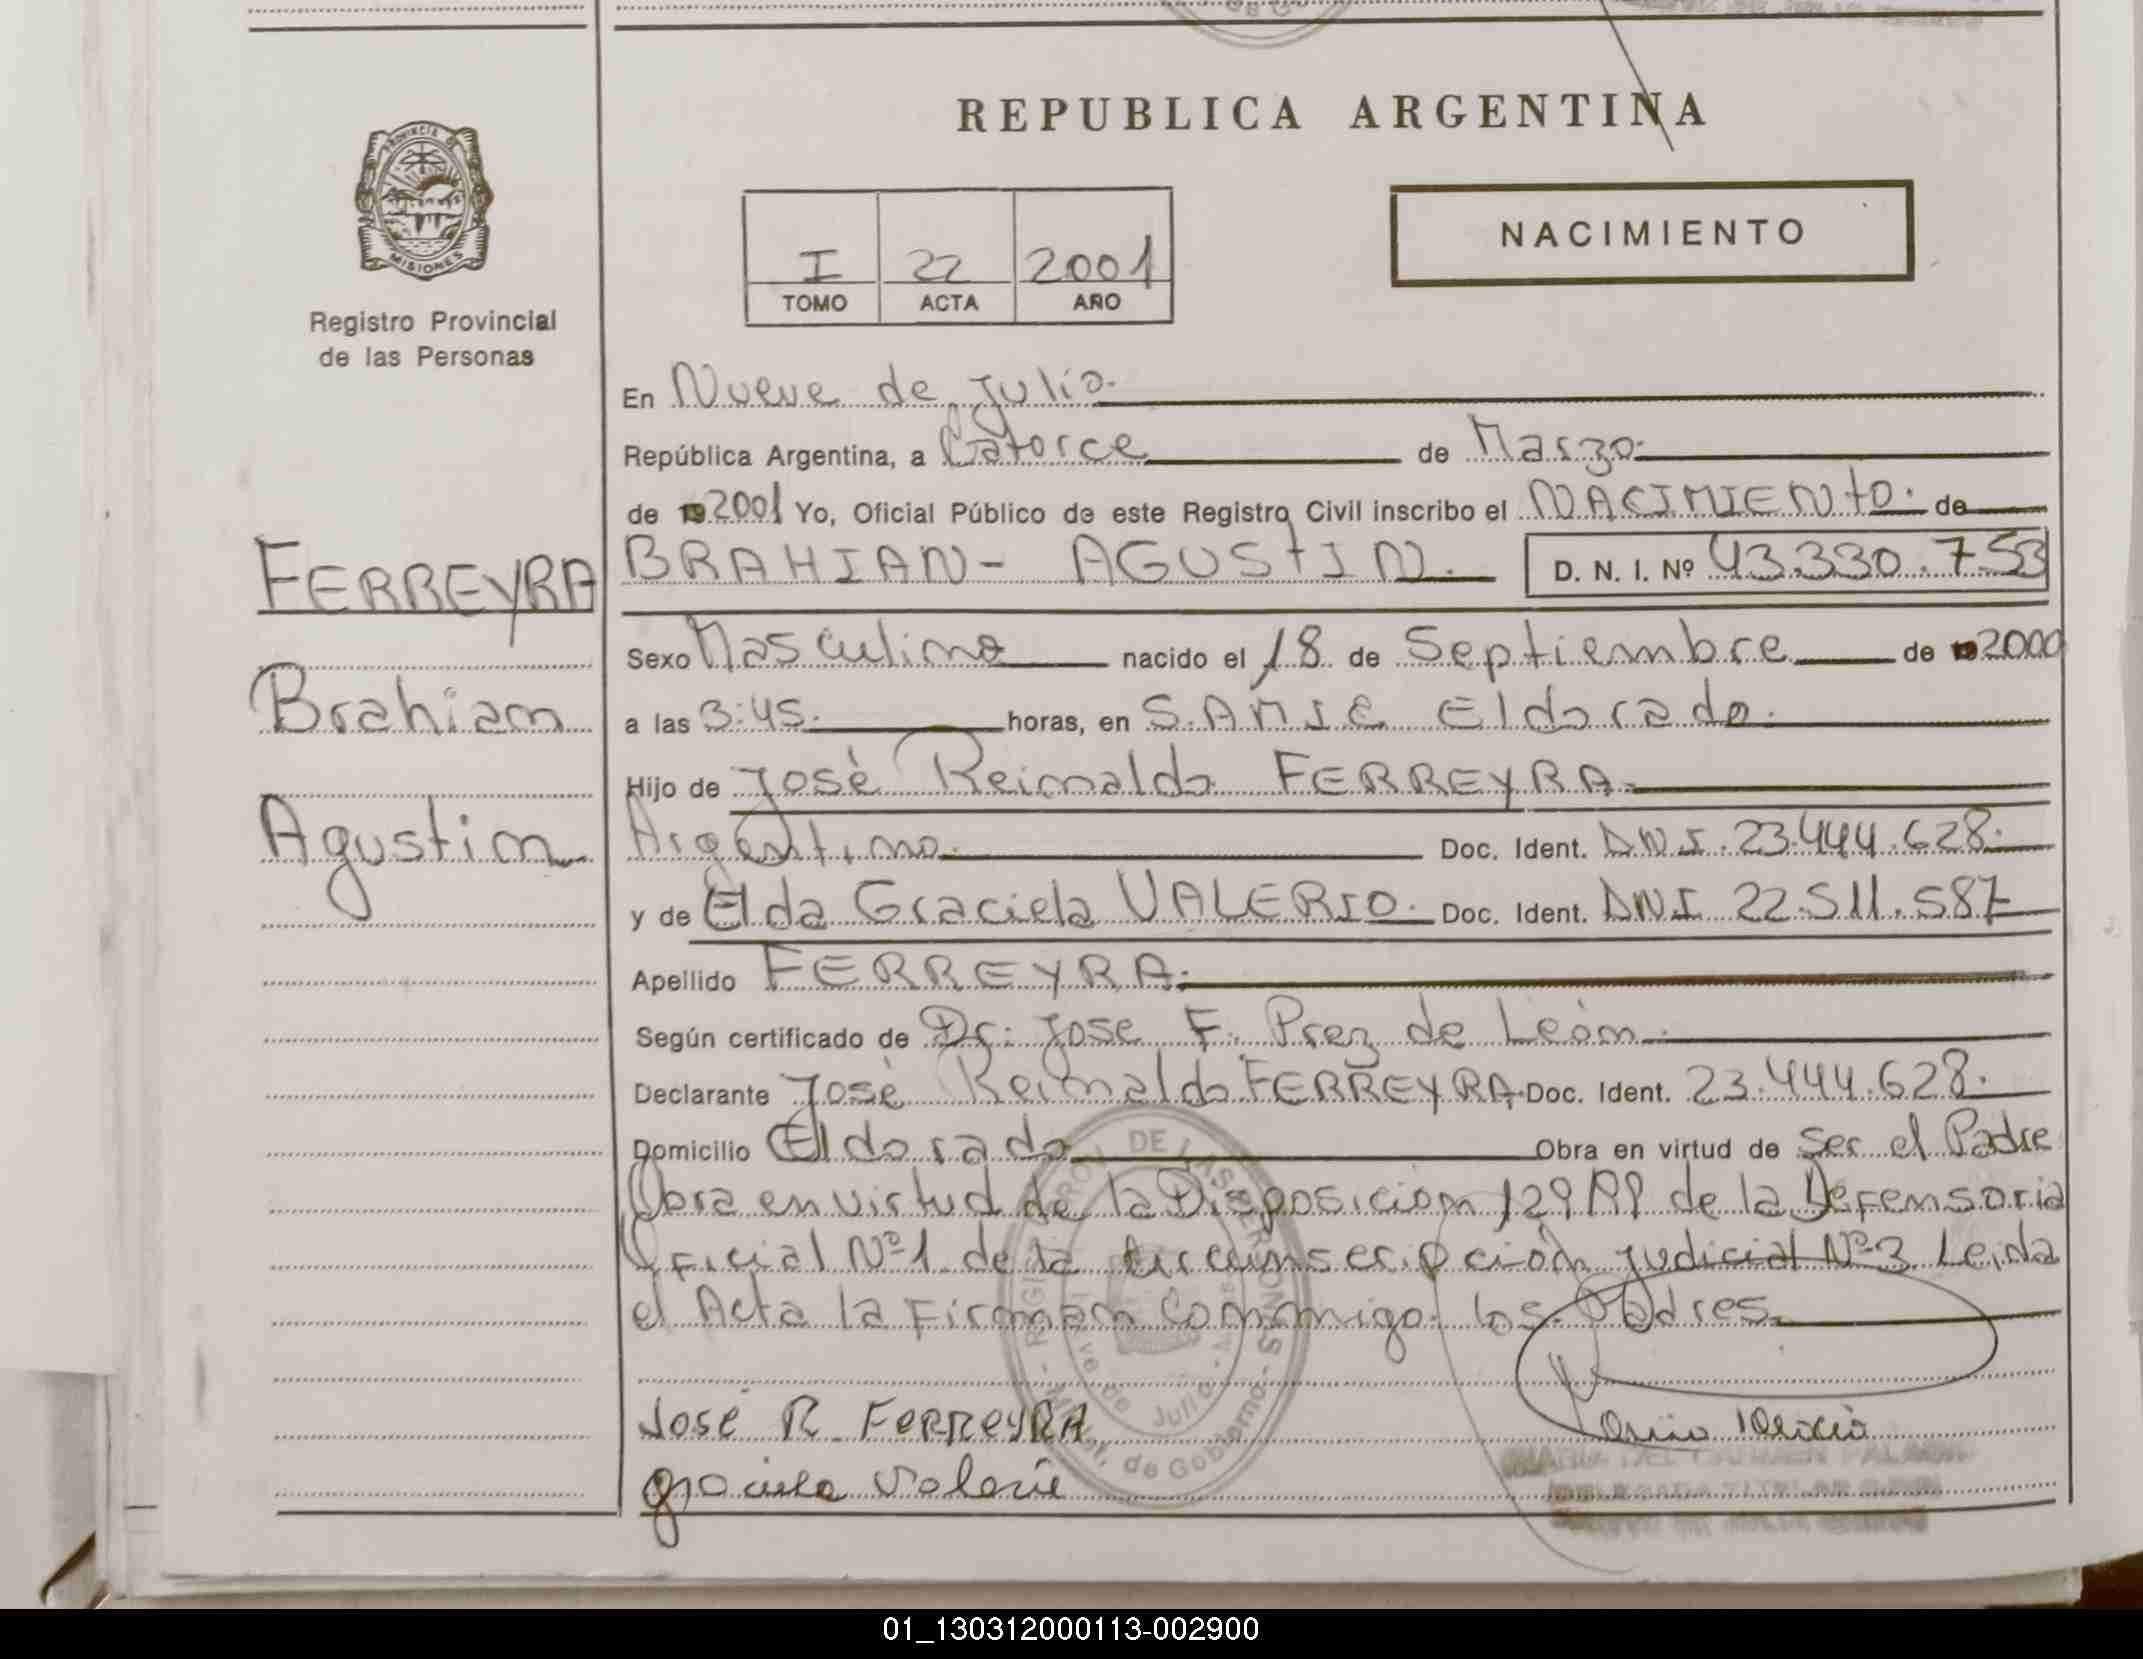 REPUBLICA ARGENTINA
PROVINCIA DE
MISIONES
Registro Provincial
de las Personas
NACIMIENTO
I 22 2001
TOMO ACTA AÑO
En Nueve de Julio.
República Argentina, a Catorce de Marzo.
de 192001 Yo, Oficial Público de este Registro Civil inscribo el NACIMIENTO. de
FERREYRA
BRAHIAN- AGUSTIN. D. N. I. Nº 43.330.753
Sexo Masculino nacido el 18 de Septiembre de 192000
Brahian
a las 3:45. horas, en S.AMIC Eldorado.
Hijo de José Reinaldo FERREYRA.
Agustin
Argentino. Doc. Ident. DNI. 23.444.628.
y de Elda Graciela VALERIO. Doc. Ident. DNI 22.511.587
Apellido FERREYRA.
Según certificado de Dr: Jose F. Prez de León.
Declarante José Reinaldo FERREYRA. Doc. Ident. 23.444.628.
Domicilio Eldorado Obra en virtud de ser el Padre
Obra en virtud de la Disposición 129/99 de la Defensoria
Oficial Nº1 de la circunscripción judicial Nº3 Leida
el Acta la Firman conmigo los Padres.
REGISTRO PROV. DE LAS PERSONAS
Nueve de Julio
Minist. de Gobierno
José R. FERREYRA
graciela Valerio
01_130312000113-002900